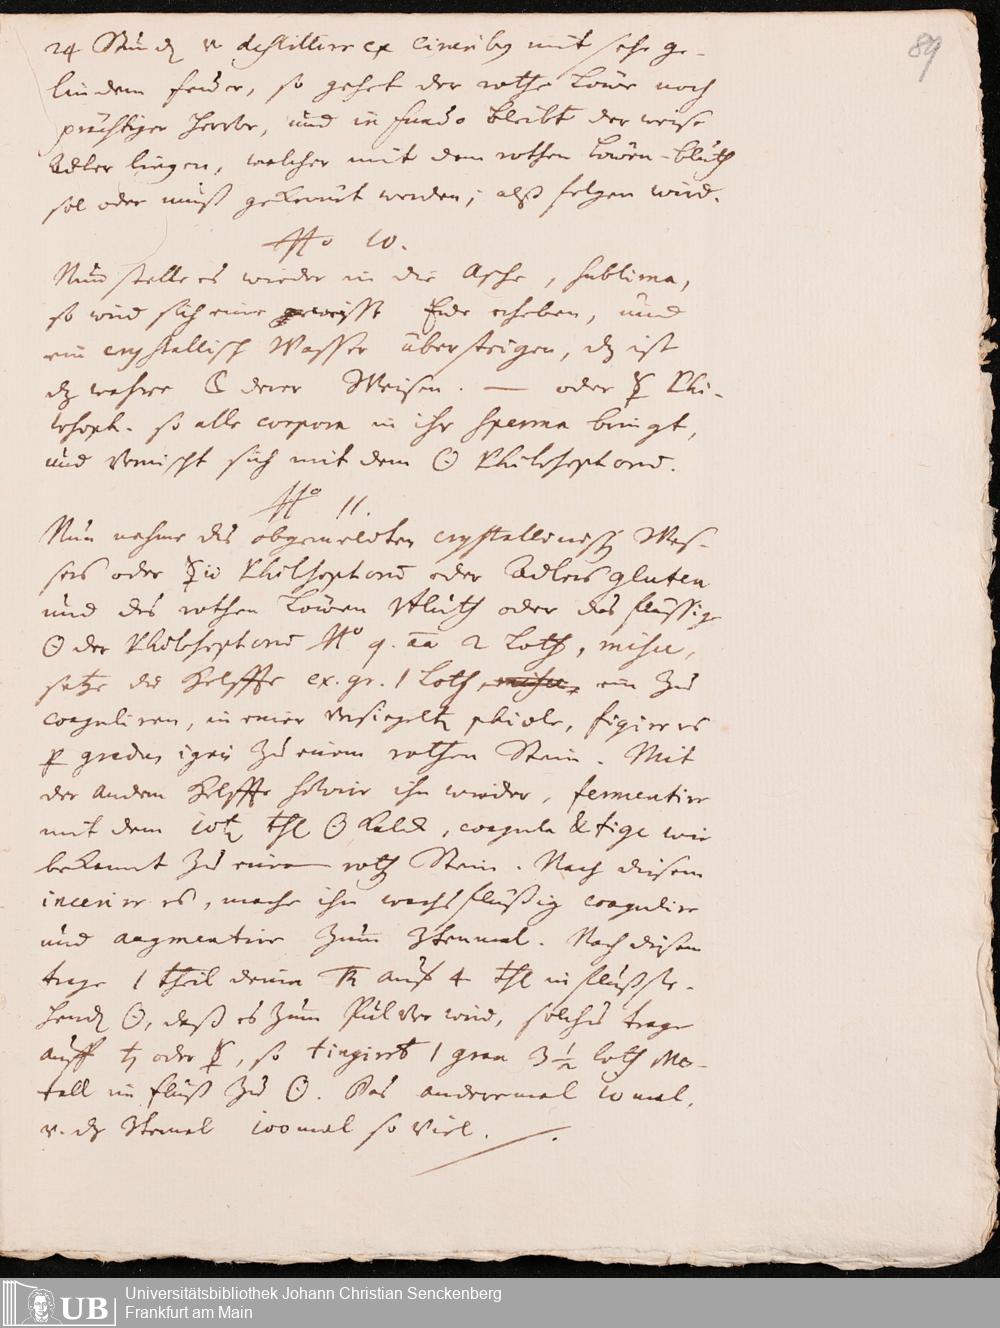 89
24 Stund v destillire ex cineribus mit sehr ge-
lindem feuer, so gehet der rothe Löwe noch
prächtiger herrbr, und in fundo bleibt der weise
Adler liegen, welcher mit dem rothen Löwen-bluth
sol oder muß getrennt werden; alß folgen wird.
No 10.
Nun stelle es wieder in die Asche, sublima,
so wird sich eine gewisse Erde erheben, und
ein crystallisch Wasser übersteigen, dz ist
dz wahre ☾ derer Weisen. — oder ☿ Phi-
losoph. so alle corpora in ihr sperma bringt,
und vermischt sich mit dem ☉ Philosophorū.
No 11.
Nun nehme des obgemeldten crystallinisch Was-
sers oder ☿ii Philosophorū oder Adlers gluten
und des rothen Löwen Bluth oder das flüssige
☉ der Philosophorū No 9. āā 2 Loth, misce,
setze die Helffte ex. gr. 1 Loth, misce, ein zu
coaguliren, in einer versiegelt phiole, figire es
p gradus ignis zu einem rothen Stein. Mit
der andern Helffte solvir ihn wieder, fermentire
mit dem 10t thl ☉ Kalck, coagula & fige wie
bekannt zu einem roth Stein. Nach diesem
incerire es, mache ihn wachsflüßig coagulire
und augmentire zum 3tenmal. Nach diesem
trage 1 theil deiner Tr auf 4 thl in fluß ste-
hend ☉, daß es zum Pulver wird, solches trage
auff ♄ oder ☿, so tingirt 1 gran 3½ loth Me-
tall im fluß zu ☉. Das anderemal 10 mal,
v. dz 3temal 100 mal so viel.
UB
Universitätsbibliothek Johann Christian Senckenberg
Frankfurt am Main